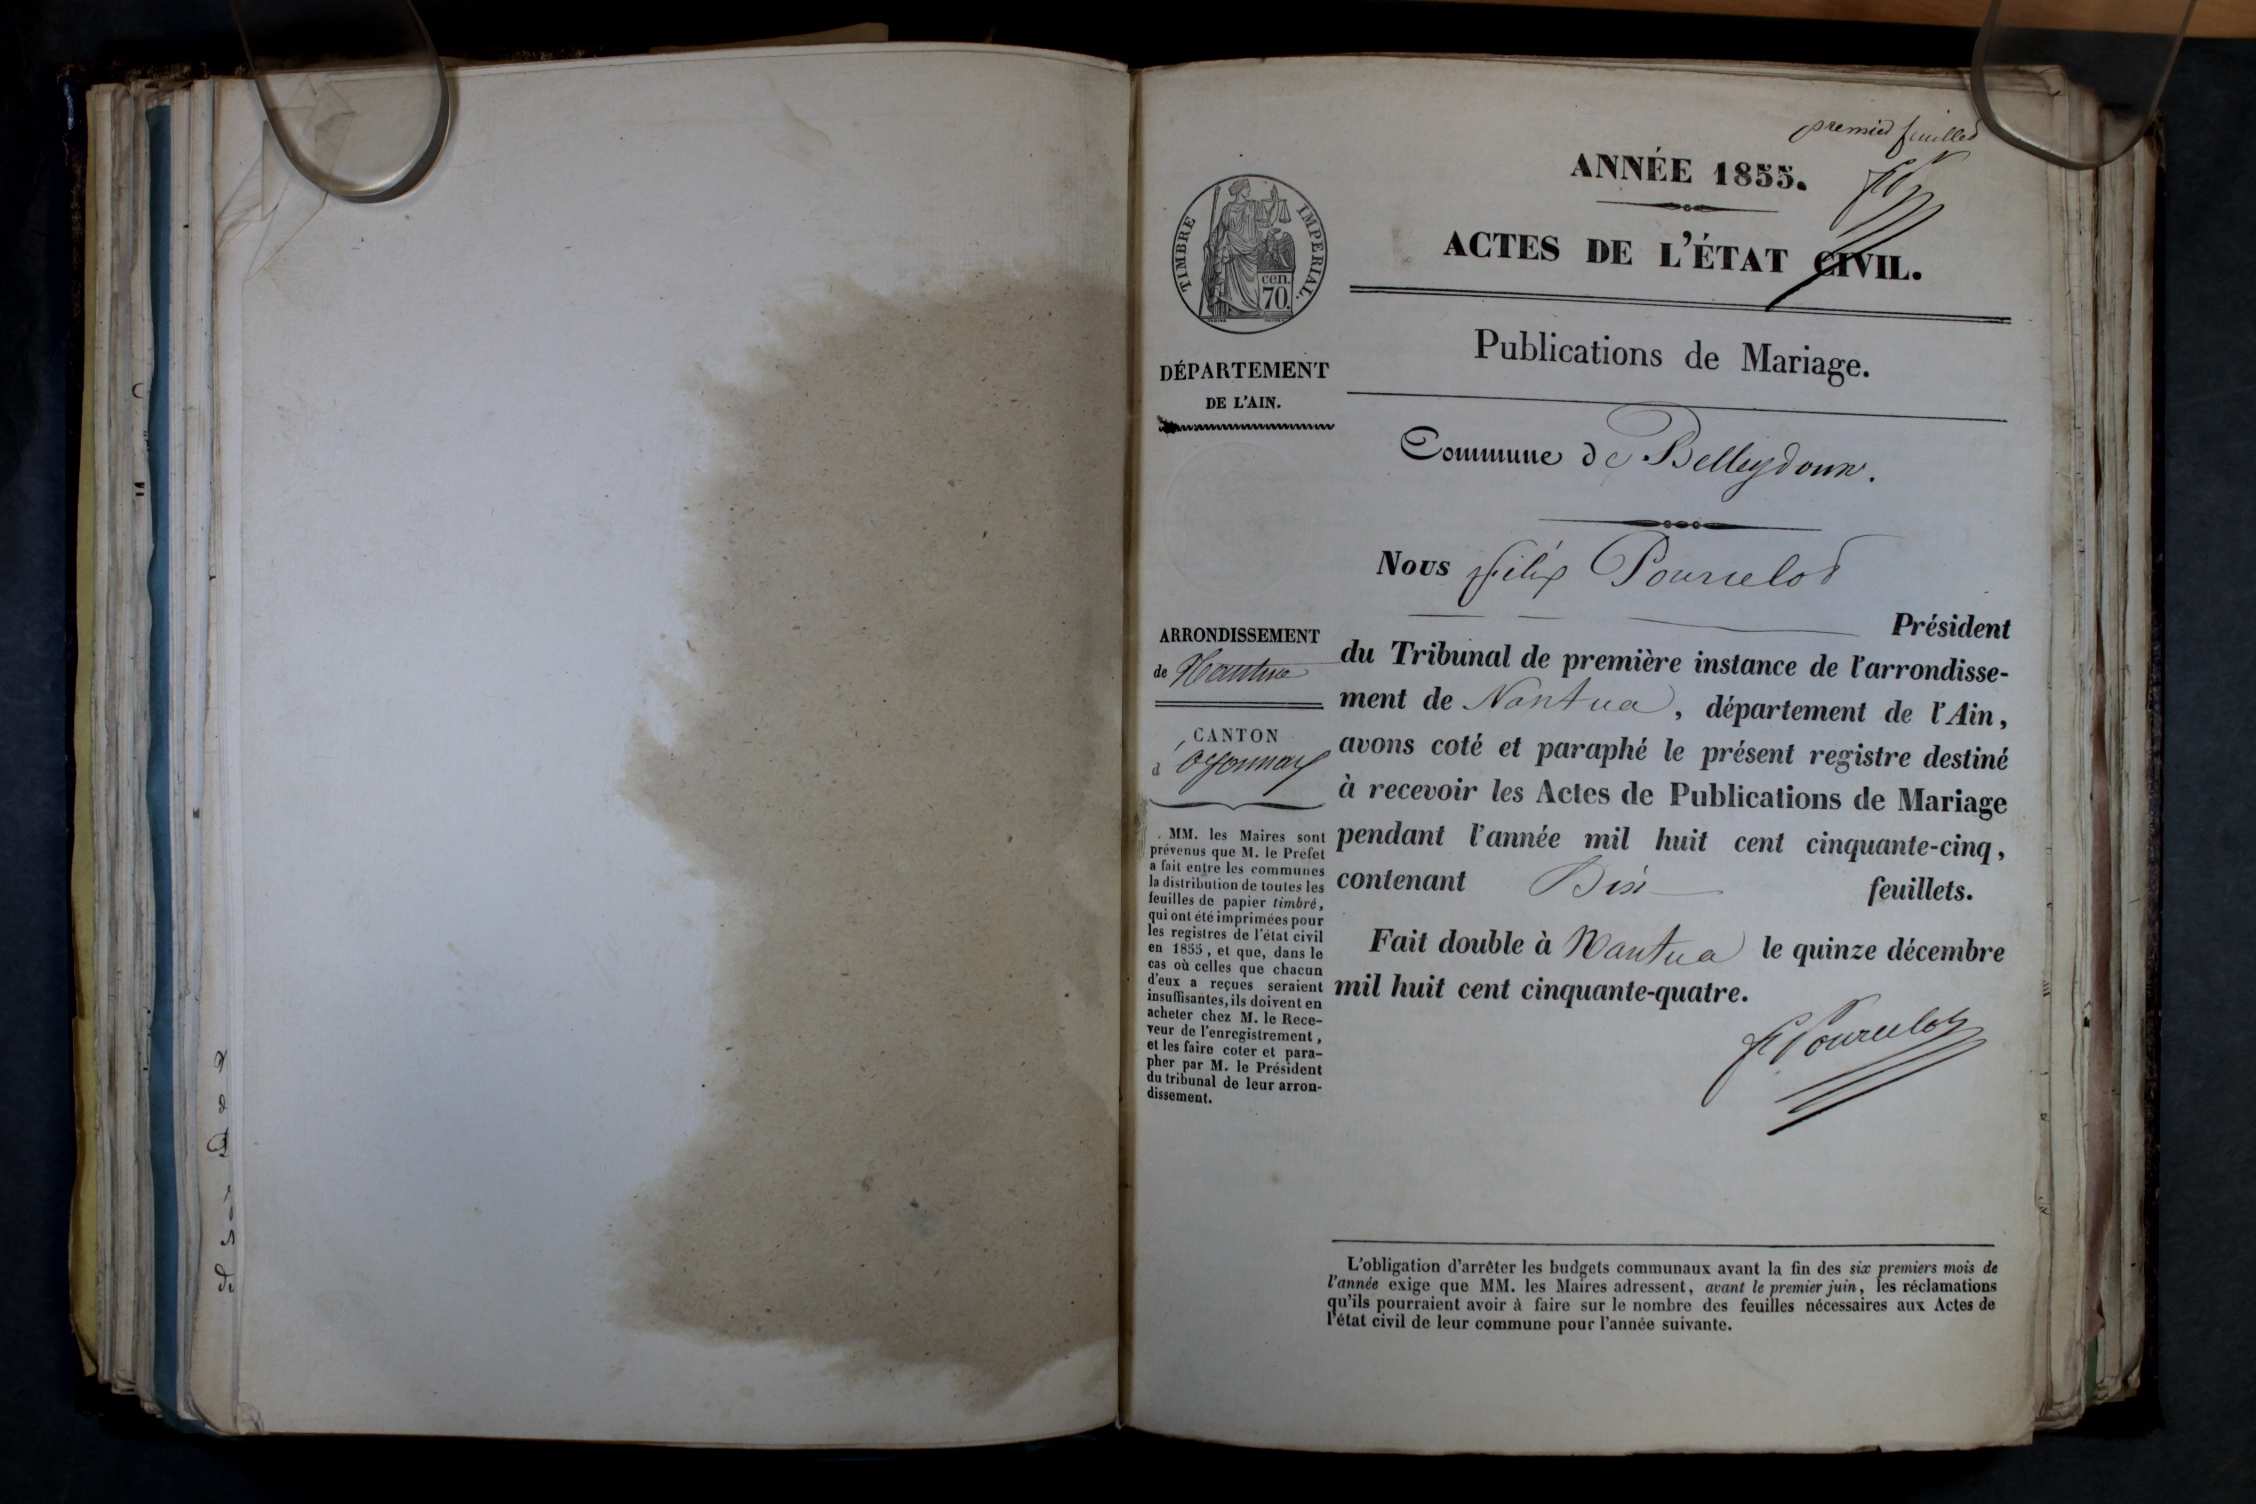 premier feuillet
ANNÉE 1855.
ACTES DE L'ÉTAT CIVIL.
Publications de Mariage.
Commune de Belleydoux.
TIMBRE IMPERIAL.
cen.
70.
DÉPARTEMENT
DE L'AIN.
ARRONDISSEMENT
de Nantua
CANTON
d'Oyonnax
MM. les Maires sont
prévenus que M. le Préfet
a fait entre les communes
la distribution de toutes les
feuilles de papier timbré,
qui ont été imprimées pour
les registres de l'état civil
en 1855, et que, dans le
cas où celles que chacun
d'eux a reçues seraient
insuffisantes, ils doivent en
acheter chez M. le Rece-
veur de l'enregistrement,
et les faire coter et para-
pher par M. le Président
du tribunal de leur arron-
dissement.
Nous Félix Pourcelot
Président
du Tribunal de première instance de l'arrondisse-
ment de Nantua, département de l'Ain,
avons coté et paraphé le présent registre destiné
à recevoir les Actes de Publications de Mariage
pendant l'année mil huit cent cinquante-cinq,
contenant feuillets.
Fait double à Nantua le quinze décembre
mil huit cent cinquante-quatre.
F Pourcelot
L'obligation d'arrêter les budgets communaux avant la fin des six premiers mois de
l'année exige que MM. les Maires adressent, avant le premier juin, les réclamations
qu'ils pourraient avoir à faire sur le nombre des feuilles nécessaires aux Actes de
l'état civil de leur commune pour l'année suivante.